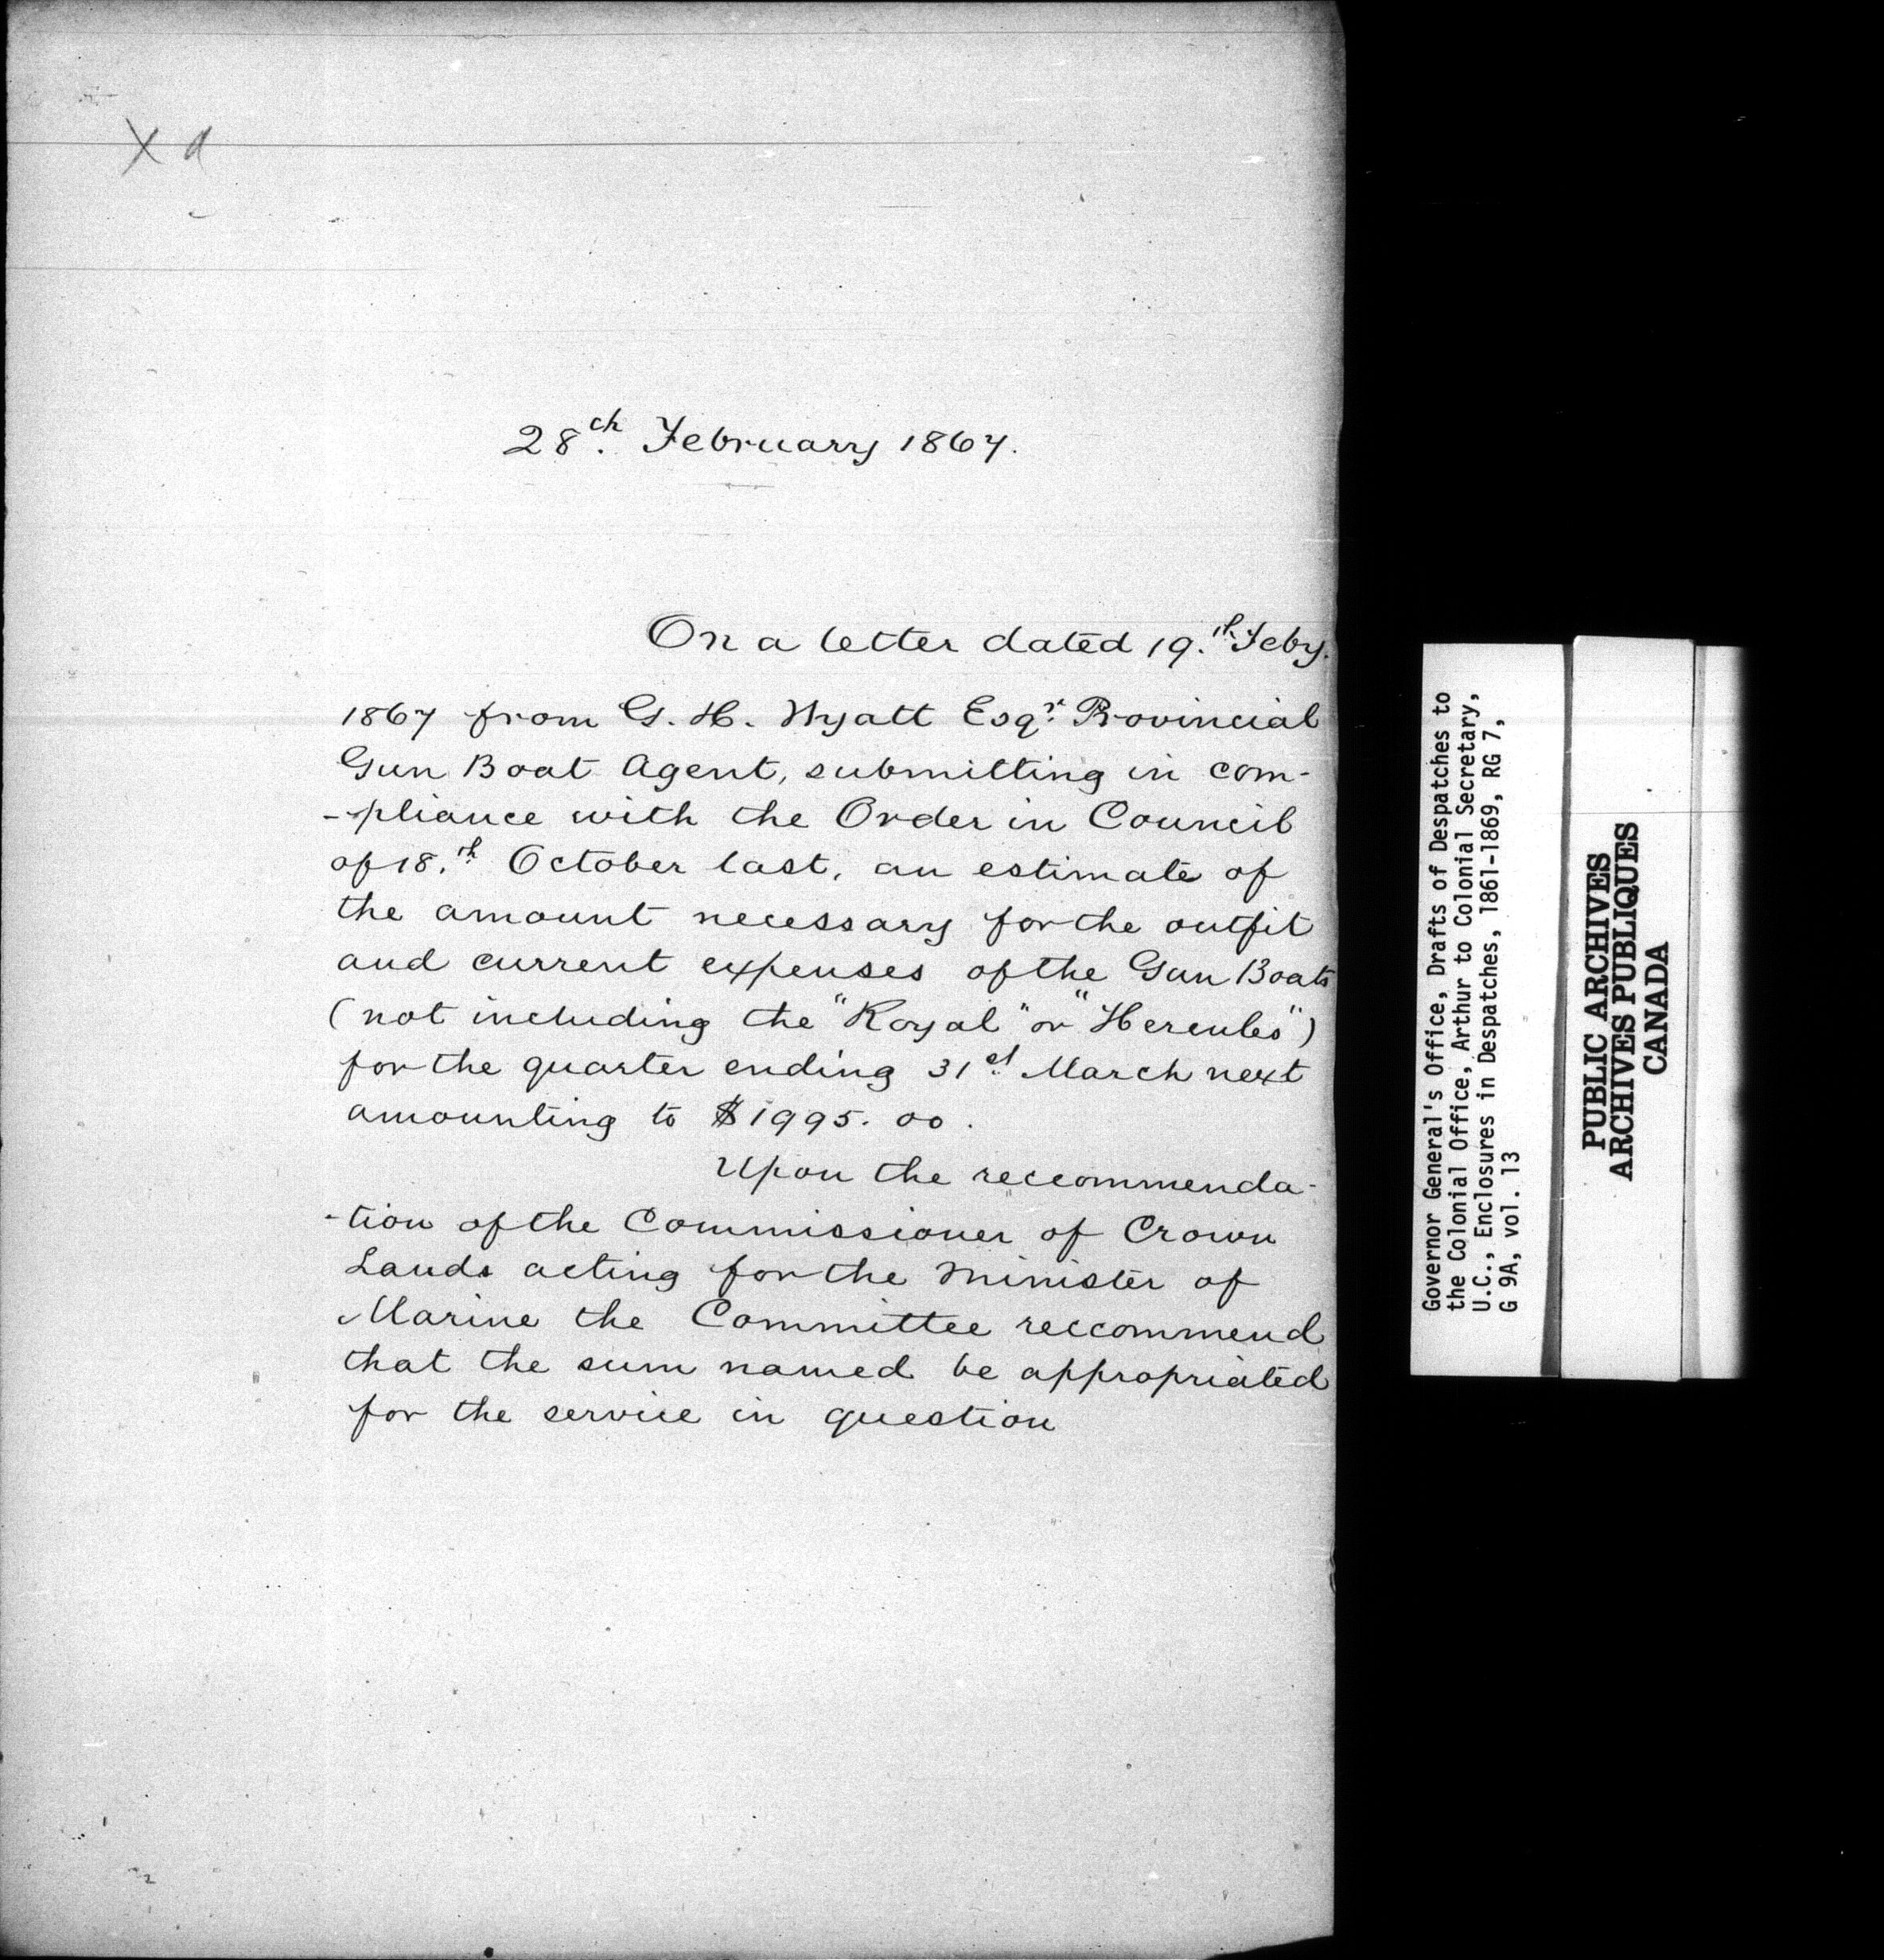 X a
28th. February 1867.
On a letter dated 19.th Feby.
1867 from G. H. Wyatt Esqr. Provincial
Gun Boat Agent, submitting in com-
-pliance with the Order in Council
of 18.th October last, an estimate of
the amount necessary for the outfit
and current expenses of the Gun Boats
(not including the "Royal" or "Hercules")
for the quarter ending 31st. March next
amounting to $1995.00.
Upon the reccommenda-
-tion of the Commissioner of Crown
Lands acting for the Minister of
Marine the Committee reccommend
that the sum named be appropriated
for the service in question
Governor General's Office, Drafts of Despatches to
the Colonial Office, Arthur to Colonial Secretary,
U.C., Enclosures in Despatches, 1861-1869, RG 7,
G 9A, vol. 13
PUBLIC ARCHIVES
ARCHIVES PUBLIQUES
CANADA